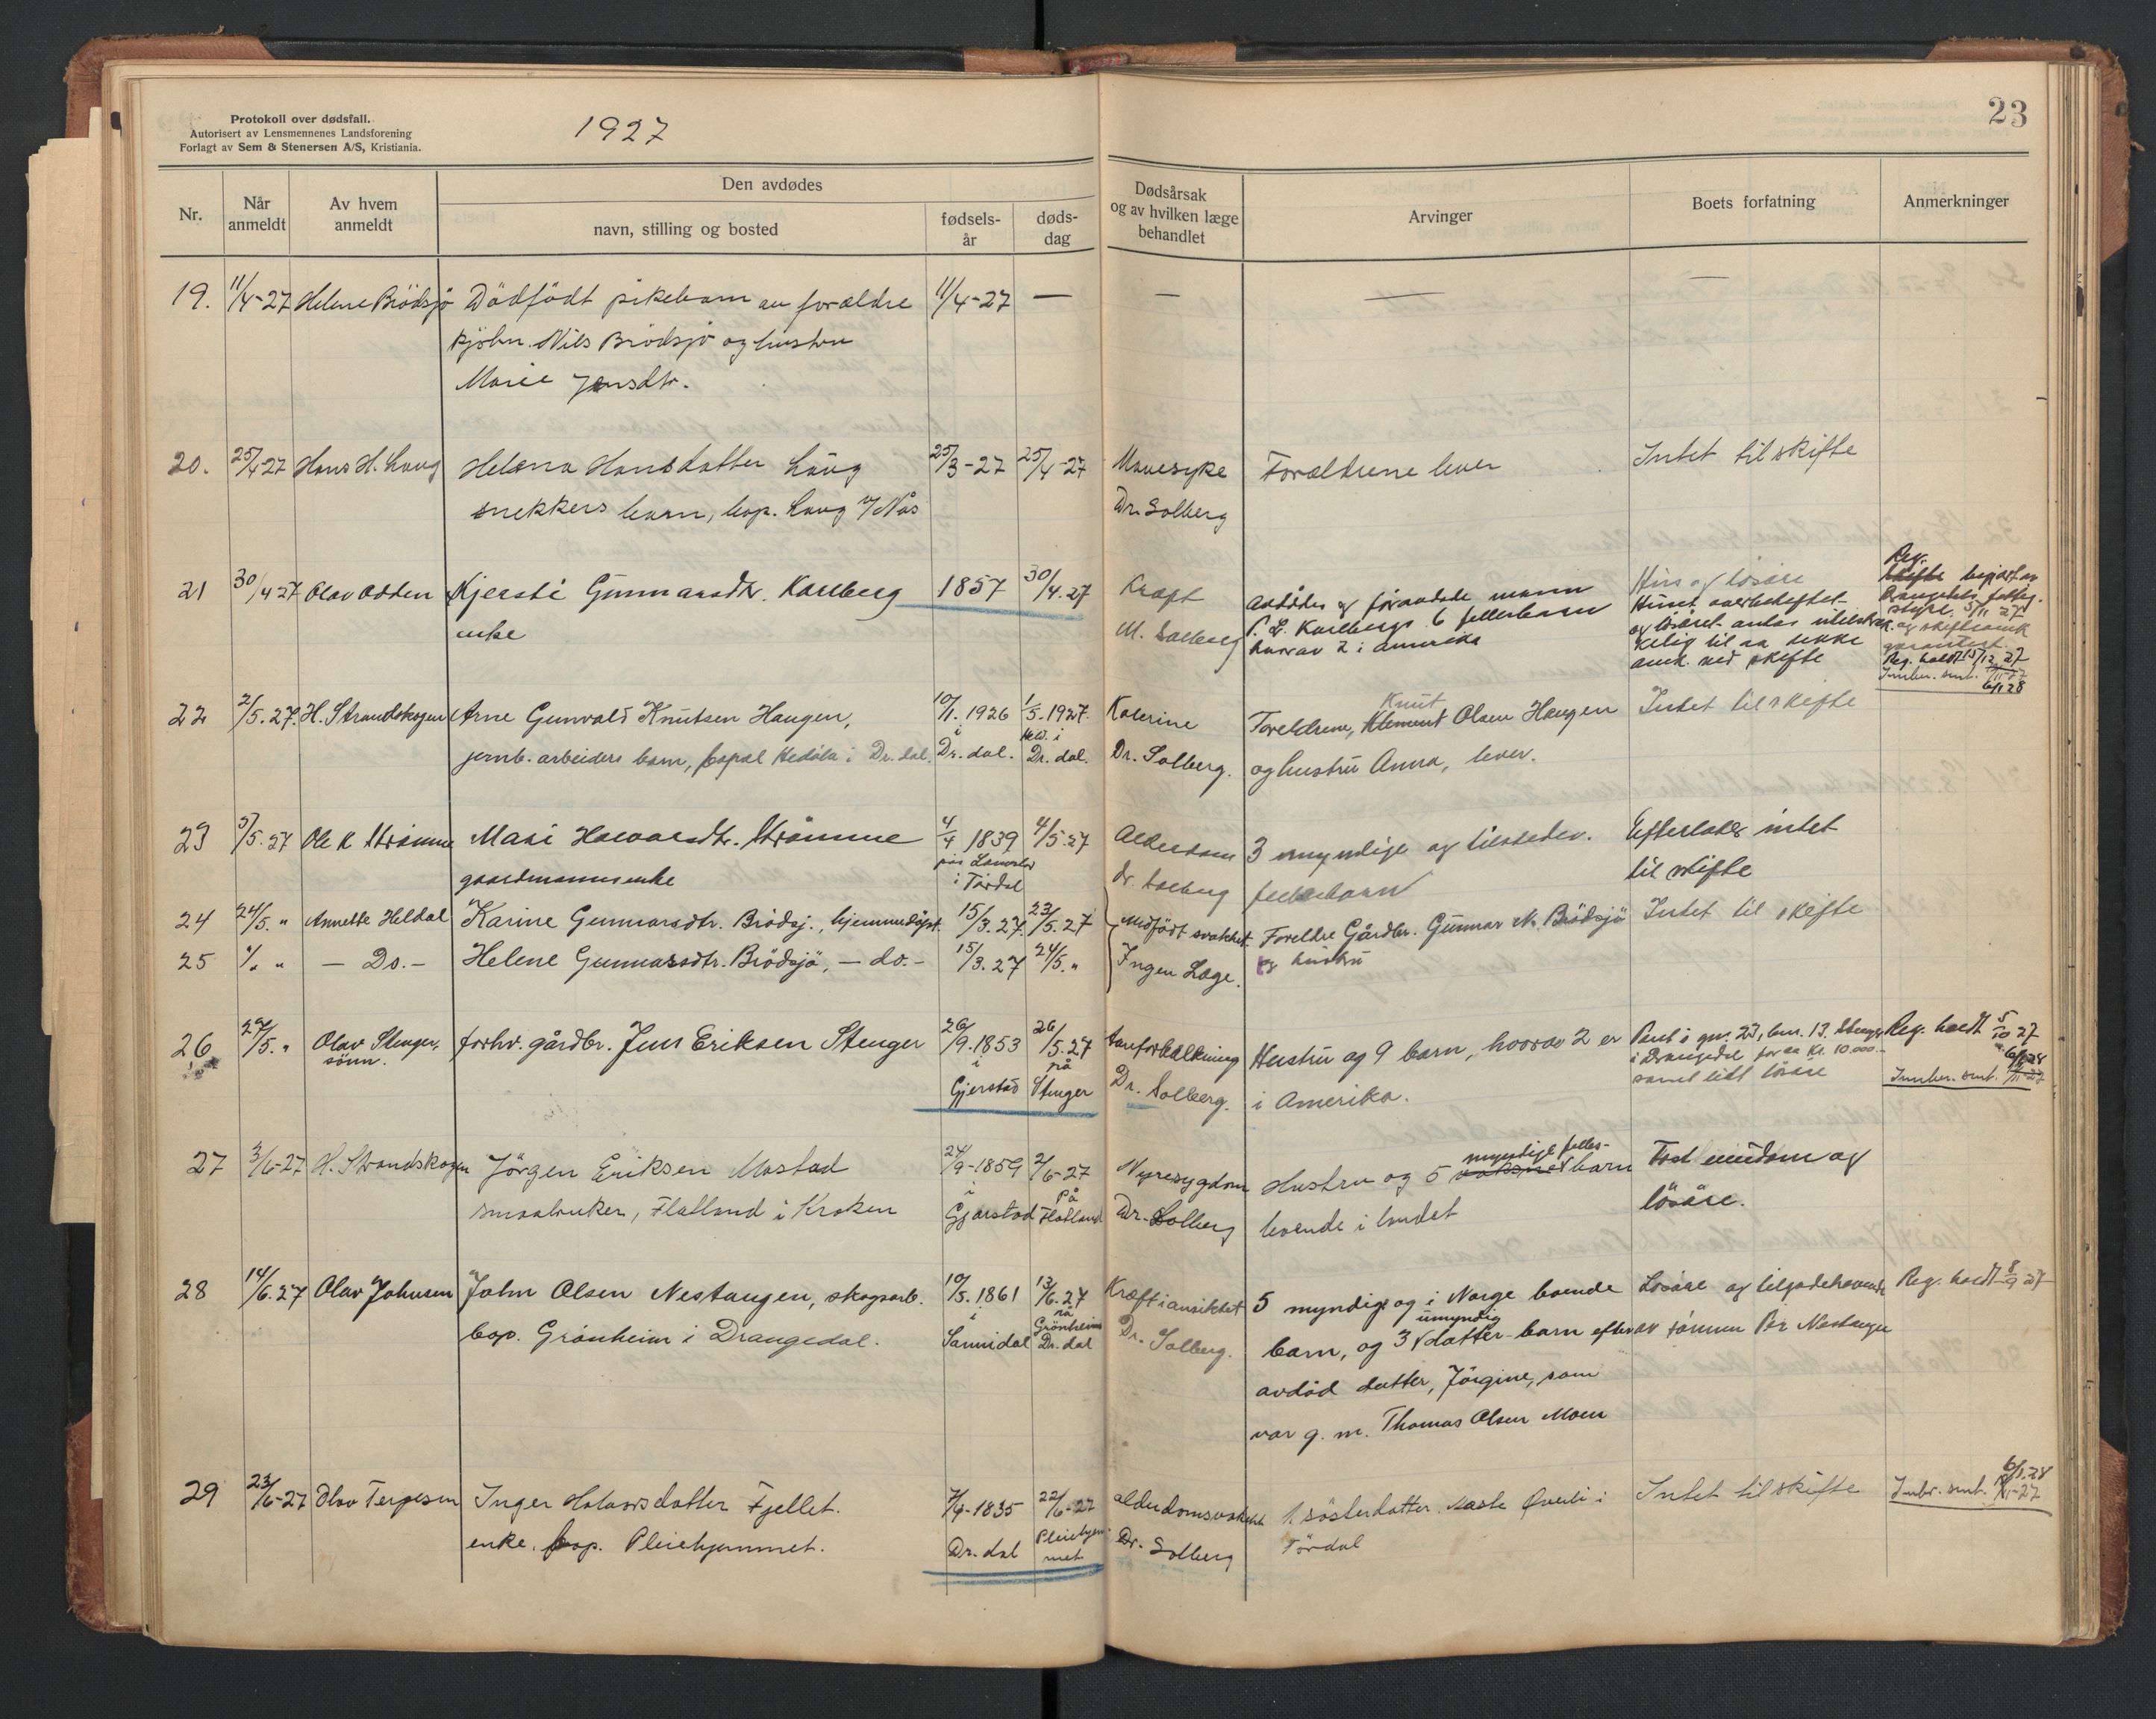 Protokoll over dødsfall.
Autorisert av Lensmennenes Landsforening
Forlagt av Sem & Stenersen A/S, Kristiania.
1927
23
Nr.
Når anmeldt
Av hvem anmeldt
Den avdødes
navn, stilling og bosted
fødsels-år
døds-dag
Dødsårsak og av hvilken læge behandlet
Arvinger
Boets forfatning
Anmerkninger
19. 11/4-27 Helene Brödsjö Dödfödt pikebarn av forældre 11/4-27 — — — —
Nils Brödsjö og hustru
Marie Jensdtr.
20. 25/4 27 Hans H. Haug Helena Hansdatter Haug 25/3-27 25/4-27 Mavesyke Forældrene lever Intet til skifte
snekkers barn, bop. Haug v/ Nås Dr. Solberg
21 30/4 27 Olav Odden Kjersti Gunnarsdtr. Karlberg 1857 30/4.27 Kræft
enke
Avdödes og föravdöde mann
Karlbergs 6 fellesbarn
hvorav 2 i Amerika
Hus og lösöre
Huset overbeheftet
og lösöret antas utilstræk-
kelig til aa dekke
omk. ved skifte
Reg.
skifte begjært av
Drangedals
styre 5/11 27
og skifteomk
garantert.
Reg. holdt 15/12 27
Innber. sent.
6/1 28
22 2/5.27. H. Strandskogen Arne Gunvald Knutsen Haugen, 10/11.1926 1/5.1927. Katerine Foreldrene, Knut Klement Olsen Haugen Intet til skifte
jernb. arbeiders barn, bopæl Hedåla i Dr. dal. i Dr. dal. i Dr. dal. Dr. Solberg. og hustru Anna, lever.
23 5/5.27 Ole K Strömme Mari Havardsdtr. Strömme 4/4 1839 4/5.27 Alderdom 3 myndige og tilstedev. Efterlader intet
gaardmannsenke i Tördal Dr. Solberg fellesbarn til skifte
24 24/5. " Annette Heldal Karine Gunnarsdtr. Brödsj., hjemmedöpt. 15/3.27. 23/5.27 Medfödt svakhet. Foreldre Gårdbr. Gunnar N. Brödsjö Intet til skifte
25 "/" " — Do. — Helene Gunnarsdtr. Brödsjö, — do. — 15/3.27 24/5. " Ingen Læge. og hustru
26 27/5. " Olav Stenger, forhv. gårdbr. Jens Eriksen Stenger 26/9.1853 26/5.27 Aareforkalkning Hustru og 9 barn, hvorav 2 er Pant i gnr. 23, bnr. 13. Stenger Reg. holdt 5/10 27
sönn. i Gjerstad på Stenger Dr. Solberg. i Amerika. i Drangedal for aa kr. 10.000.— samt lidt lösöre Innber. sent. 6/1 28
27 3/6-27 H. Strandskogen Jörgen Eriksen Mostad 24/9-1859 2/6-27 Nyresygdom Hustru og 5 voksne myndige felles-barn Fast eiendom og
smaabruker, Flatland i Kroken i Gjerstad på Flatland Dr. Solberg boende i landet lösöre.
28 14/6.27 Olav Johnsen John Olsen Nestangen, skogsarb. 10/5.1861 13/6.27 Kræft i ansiktet 5 myndige og i Norge boende Lösöre og tilgodehavende Reg. holdt 8/9 27
bop. Grönheim i Drangedal. i Sannidal på Grönheim Dr. dal Dr. Solberg. barn, og 3 umyndig datter-barn efter av sönnen Per Nestangen
avdöd datter, Jörgine, som
var g. m. Thomas Olsen Moen
29 23/6-27 Olav Terjesen Inger Halvorsdatter Fjellet. 7/4-1835 22/6-27 Alderdomsvakhet 1. sösterdatter Aaste Överbö i Intet til skifte Innbr. sent. 6/1.28
enke, bop. Pleiehjemmet. Dr. dal Pleiehjemmet Dr. Solberg Tördal